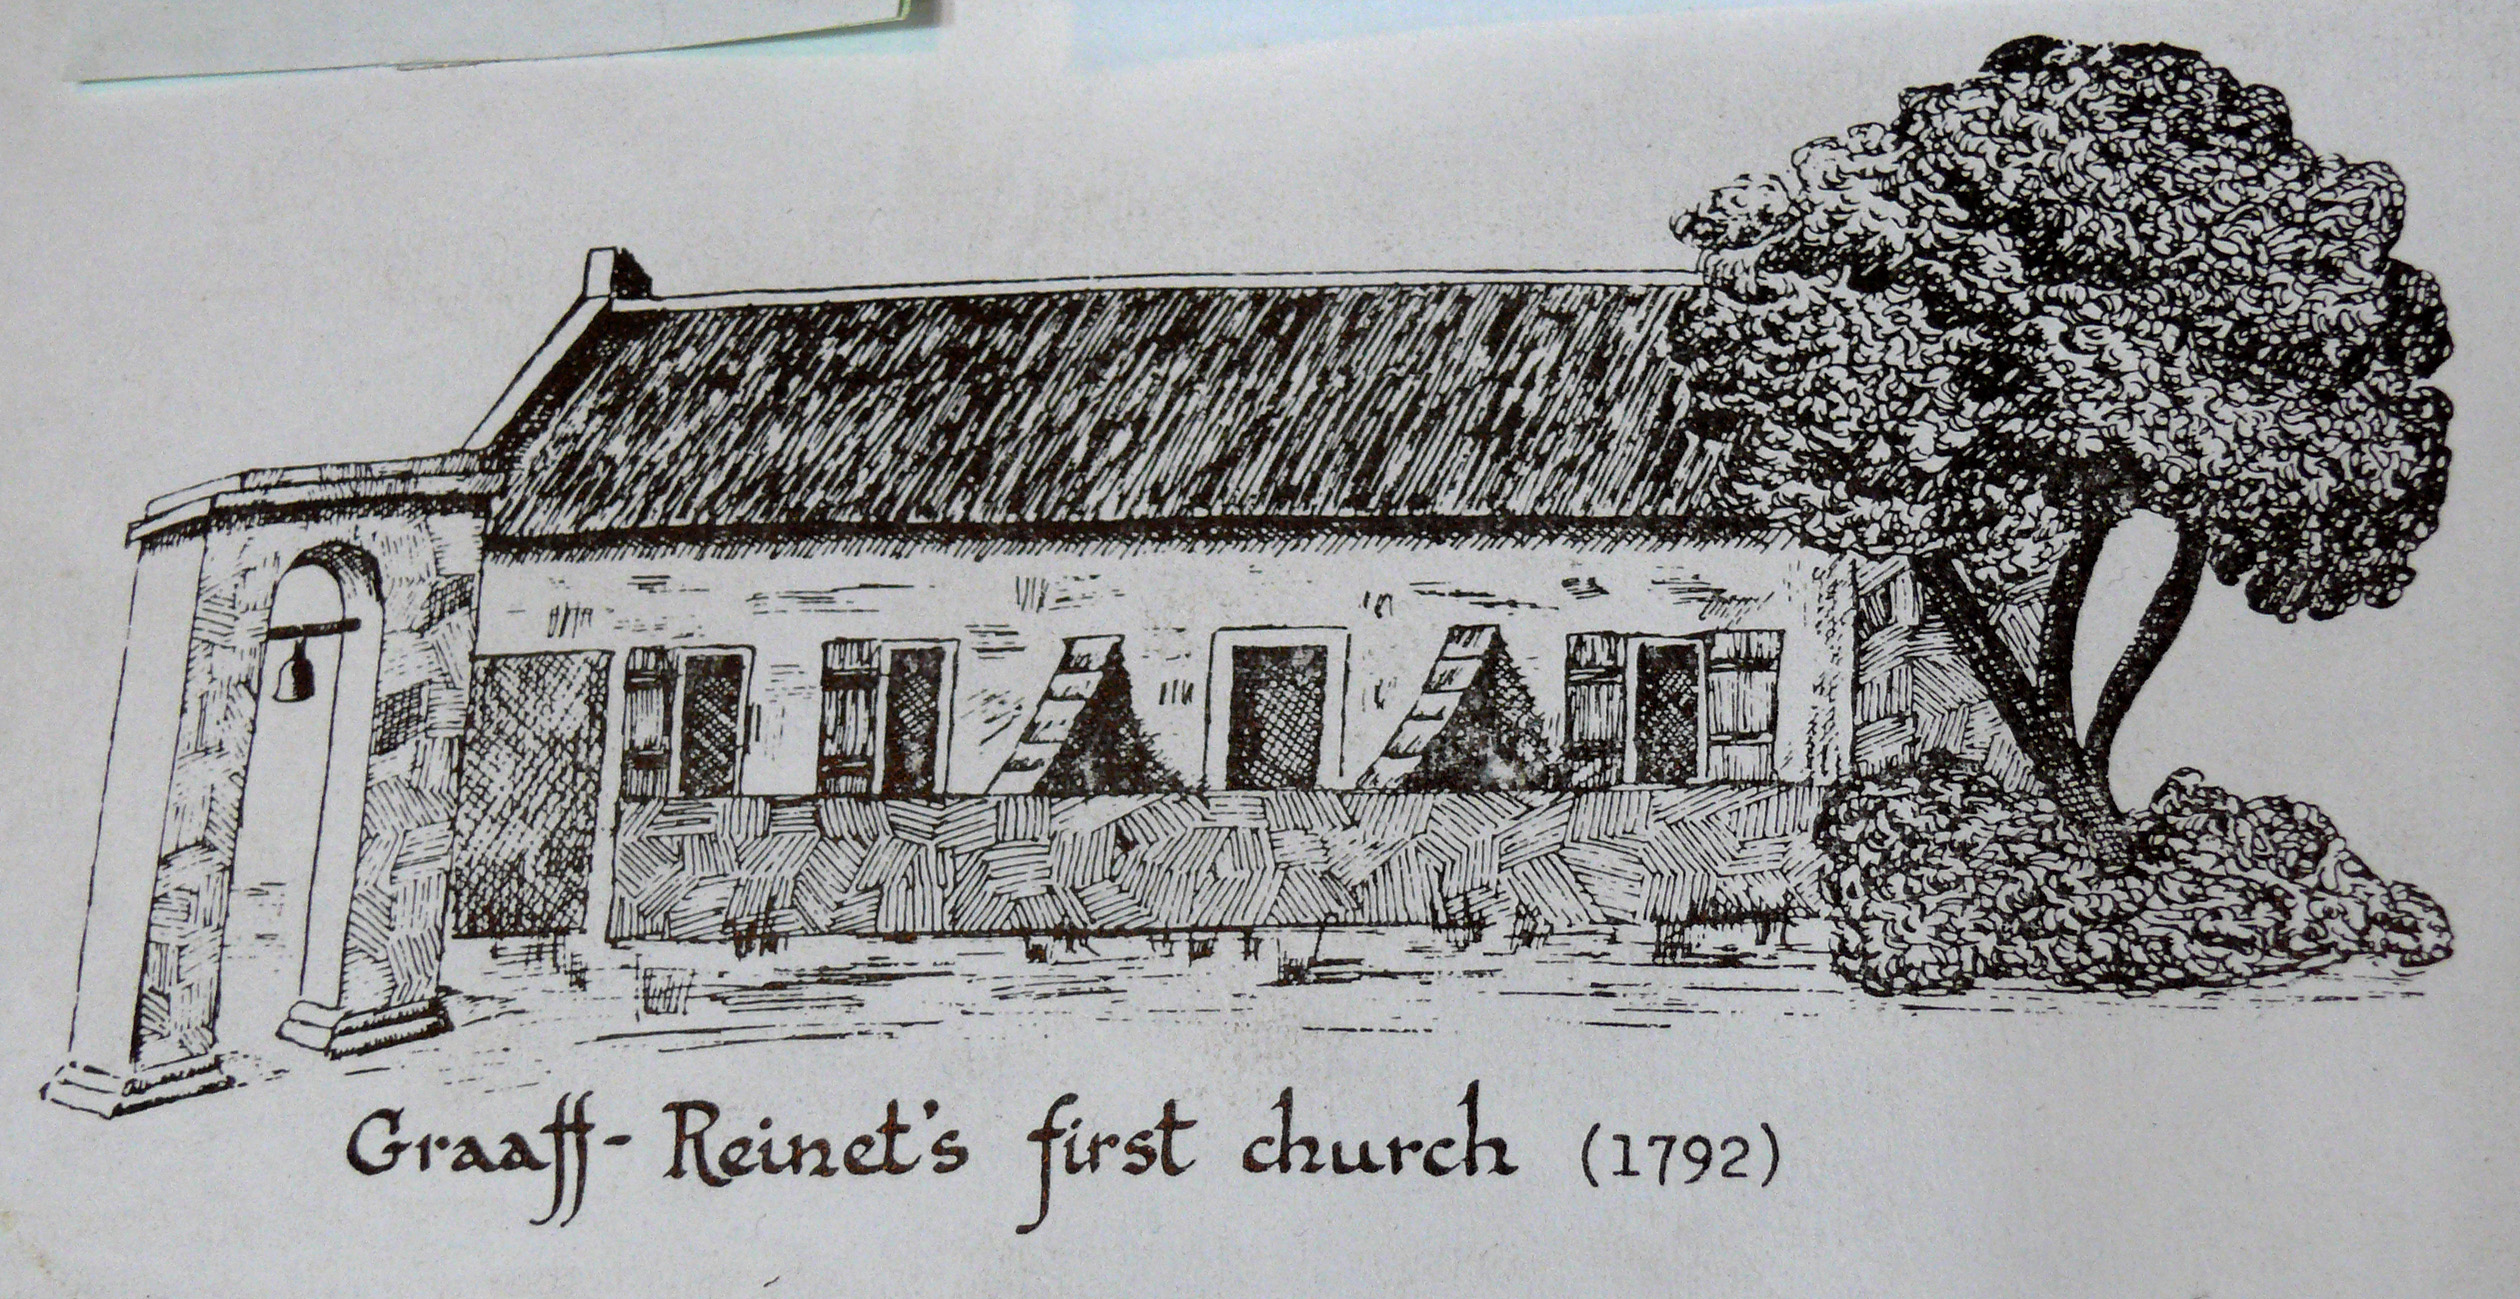 Graaff-Reinet's first church (1792)